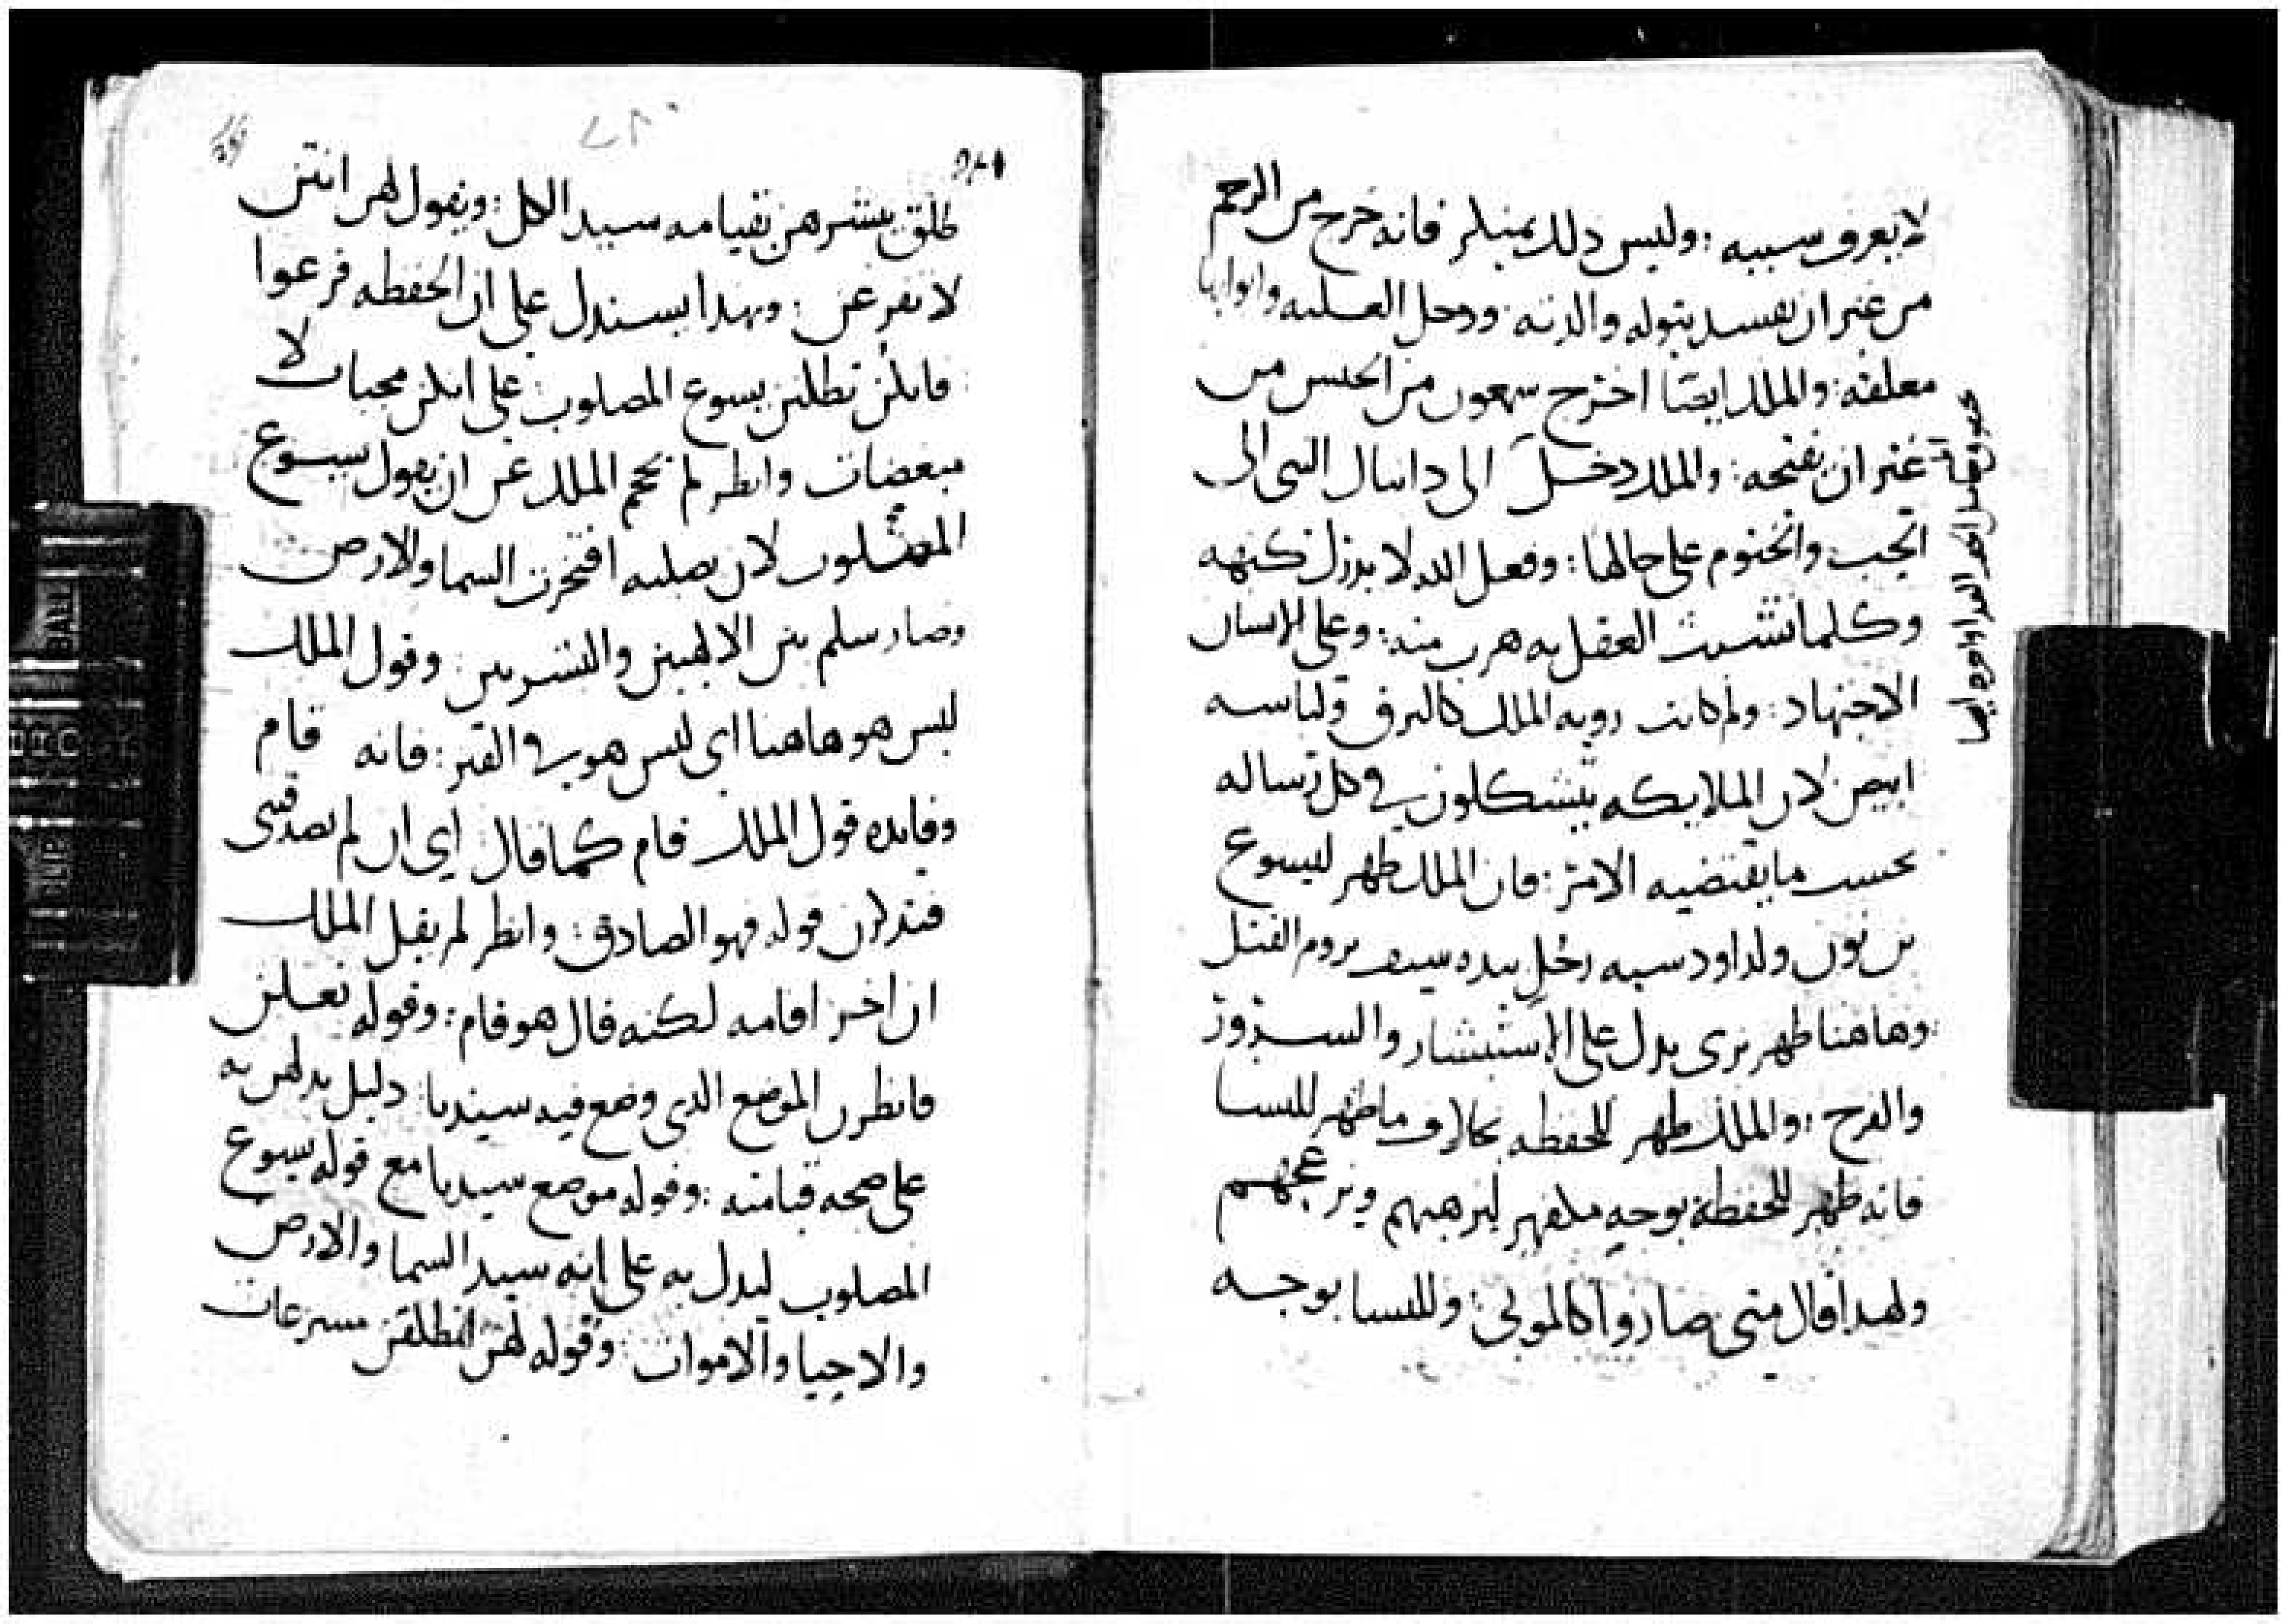 لا يعرف سببه : وليس ذلك بمنكر فانه خرج من الرحم
من غير ان تفسد بتوله والدته ودخل العليه وابوابها
معلقه : والملك ايضا اخرج سمعون من الحبس من
غير ان يفتحه : والملك دخل الى دانيال النبى الى
الجب والختوم على حالها : وفعل الله لا يدرك كنهه
وكلما تشبث العقل به هرب منه : وعلى الانسان
الاجتهاد : ولم كانت رويه الملك كالبرق ولباسه
ابيض لان الملايكه يتشكلون في كل رساله
بحسب ما يقتضيه الامر : فان الملك ظهر ليسوع
بن نون ولداود شبه رجل بيده سيف يروم القتل
وهاهنا ظهر بزى يدل على الاستبشار والسرور
والفرح : والملك ظهر للحفظه بخلاف ما ظهر للنسا
فانه ظهر للحفظة بوجه مكفهر ليرهبهم ويزعجهم
ولهذا قال متى صاروا كالموتى : وللنسا بوجه
طلق يبشرهن بقيامه سيد الكل : ويقول لهن انتن
لا تفزعن : وبهذا يستدل على ان الحفظه فزعوا
فانكن تطلبن يسوع المصلوب على انكن محبات لا
مبغضات وانظر لم نحم الملك عن ان يقول يسوع
المصلوب لان بصلبه افتخرت السما والارض
وصار سلم بين الالهيين والبشريين : وقول الملك
ليس هو هاهنا اى ليس هو في القبر : فانه قام
وفايده قول الملك قام كما قال اى ان لم تصدقنى
فتذكرن قوله فهو الصادق : وانظر لم يقل الملك
ان اخر اقامه لكنه قال هو قام : وقوله تعلن
فانظرن الموضع الدى وضع فيه سيدنا دليل يدلهن به
على صحه قيامته : وقوله موضع سيدنا مع قوله يسوع
المصلوب ليدل به على انه سيد السما والارض
والاحيا والاموات : وقوله لهن انطلقن مسرعات